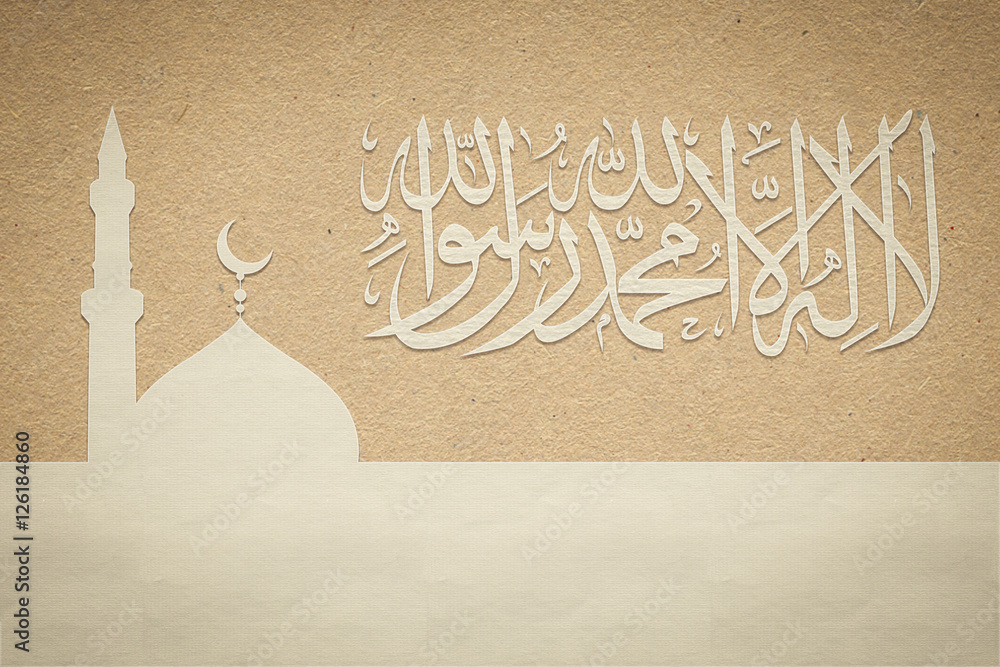 لا إله إلا الله محمد رسول الله
Adobe Stock | #126184860
Adobe Stock